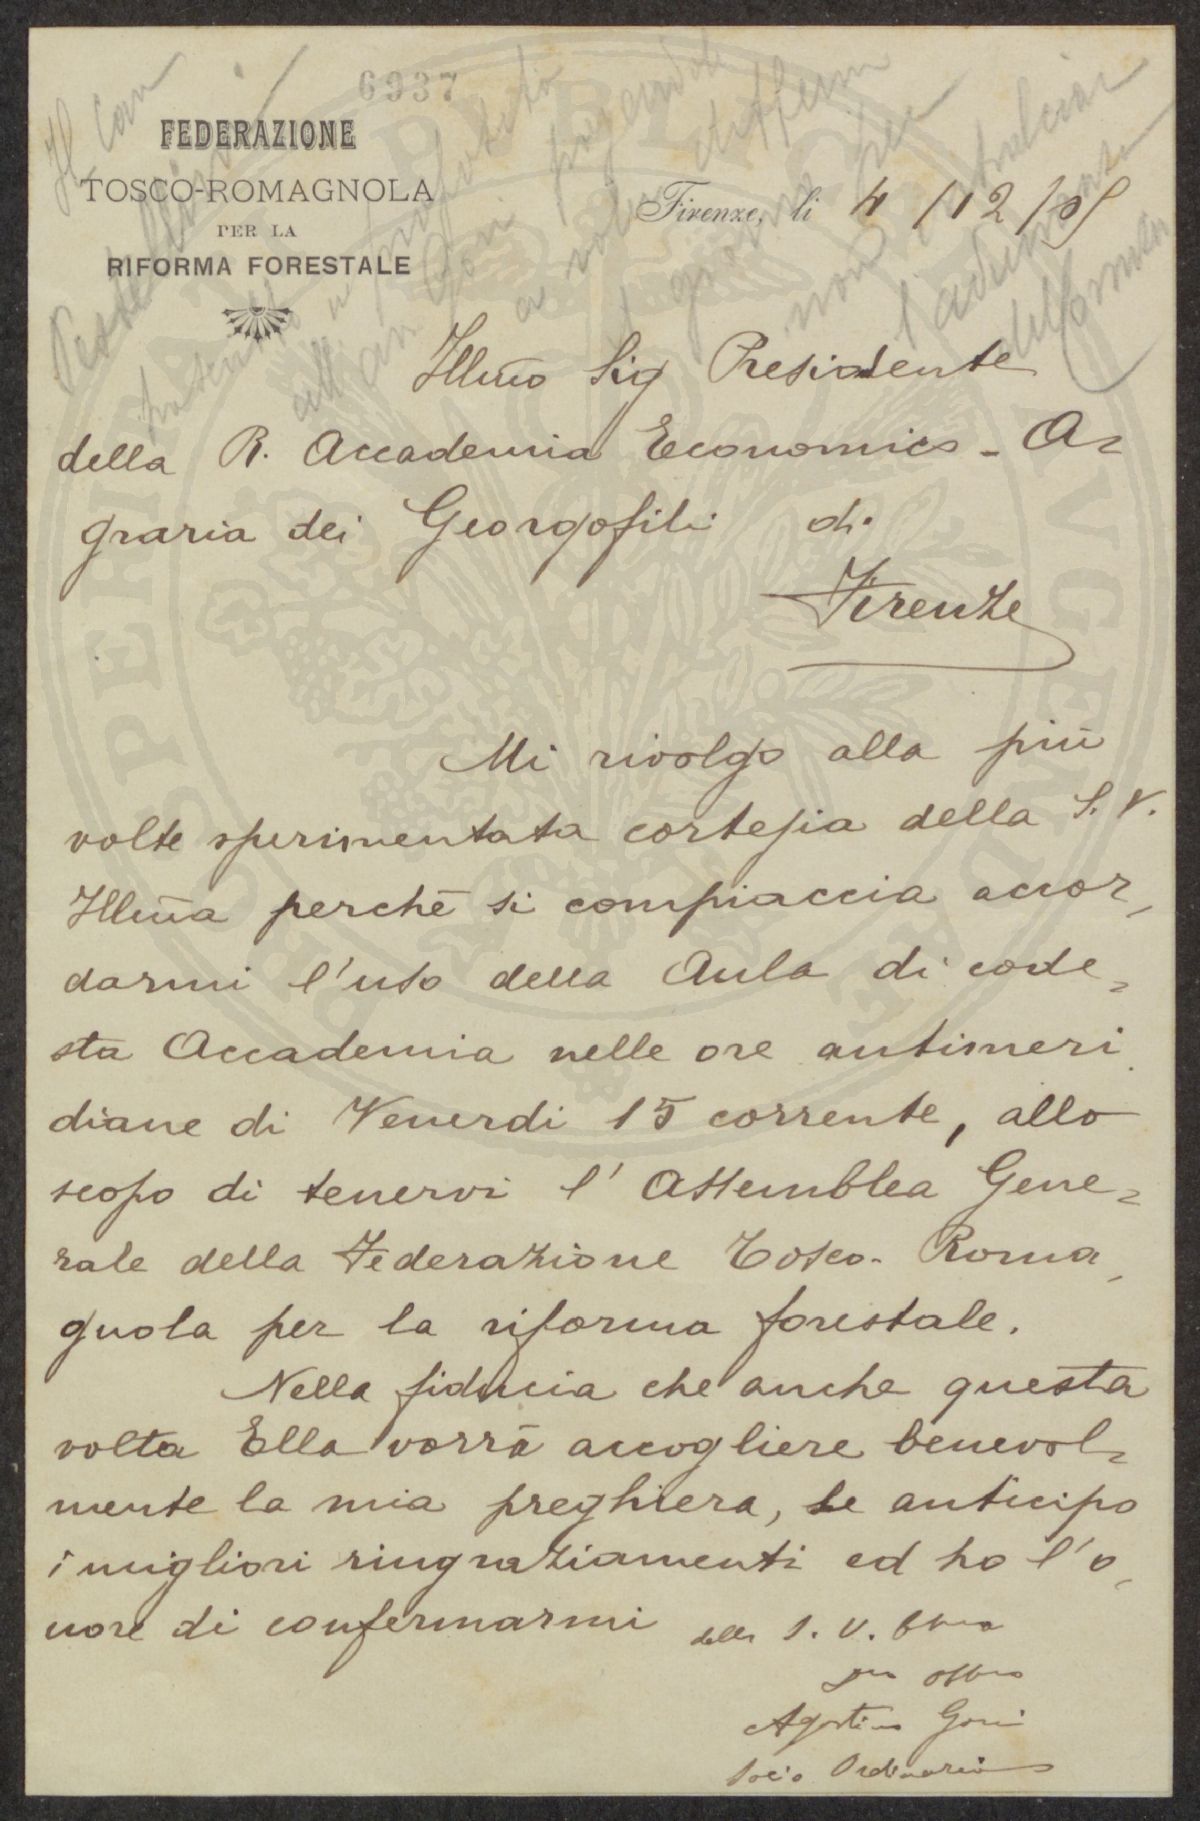 6937
FEDERAZIONE
TOSCO-ROMAGNOLA
PER LA
RIFORMA FORESTALE
Firenze, li 4/12/05
Illmo Sig Presidente
della R. Accademia Economico-A=
graria dei Georgofili di
Firenze
Mi rivolgo alla più
volte sperimentata cortesia della S. V.
Illma perchè si compiaccia accor-
darmi l'uso della Aula di code=
sta Accademia nelle ore antimeri
diane di Venerdi 15 corrente, allo
scopo di tenervi l'Assemblea Gene=
rale della Federazione Tosco-Roma-
gnola per la riforma forestale.
Nella fiducia che anche questa
volta Ella vorrà accogliere benevol=
mente la mia preghiera, Le anticipo
i migliori ringraziamenti ed ho l'o-
nore di confermarmi della S. V. Illma
Agostino Gori
Socio Ordinario